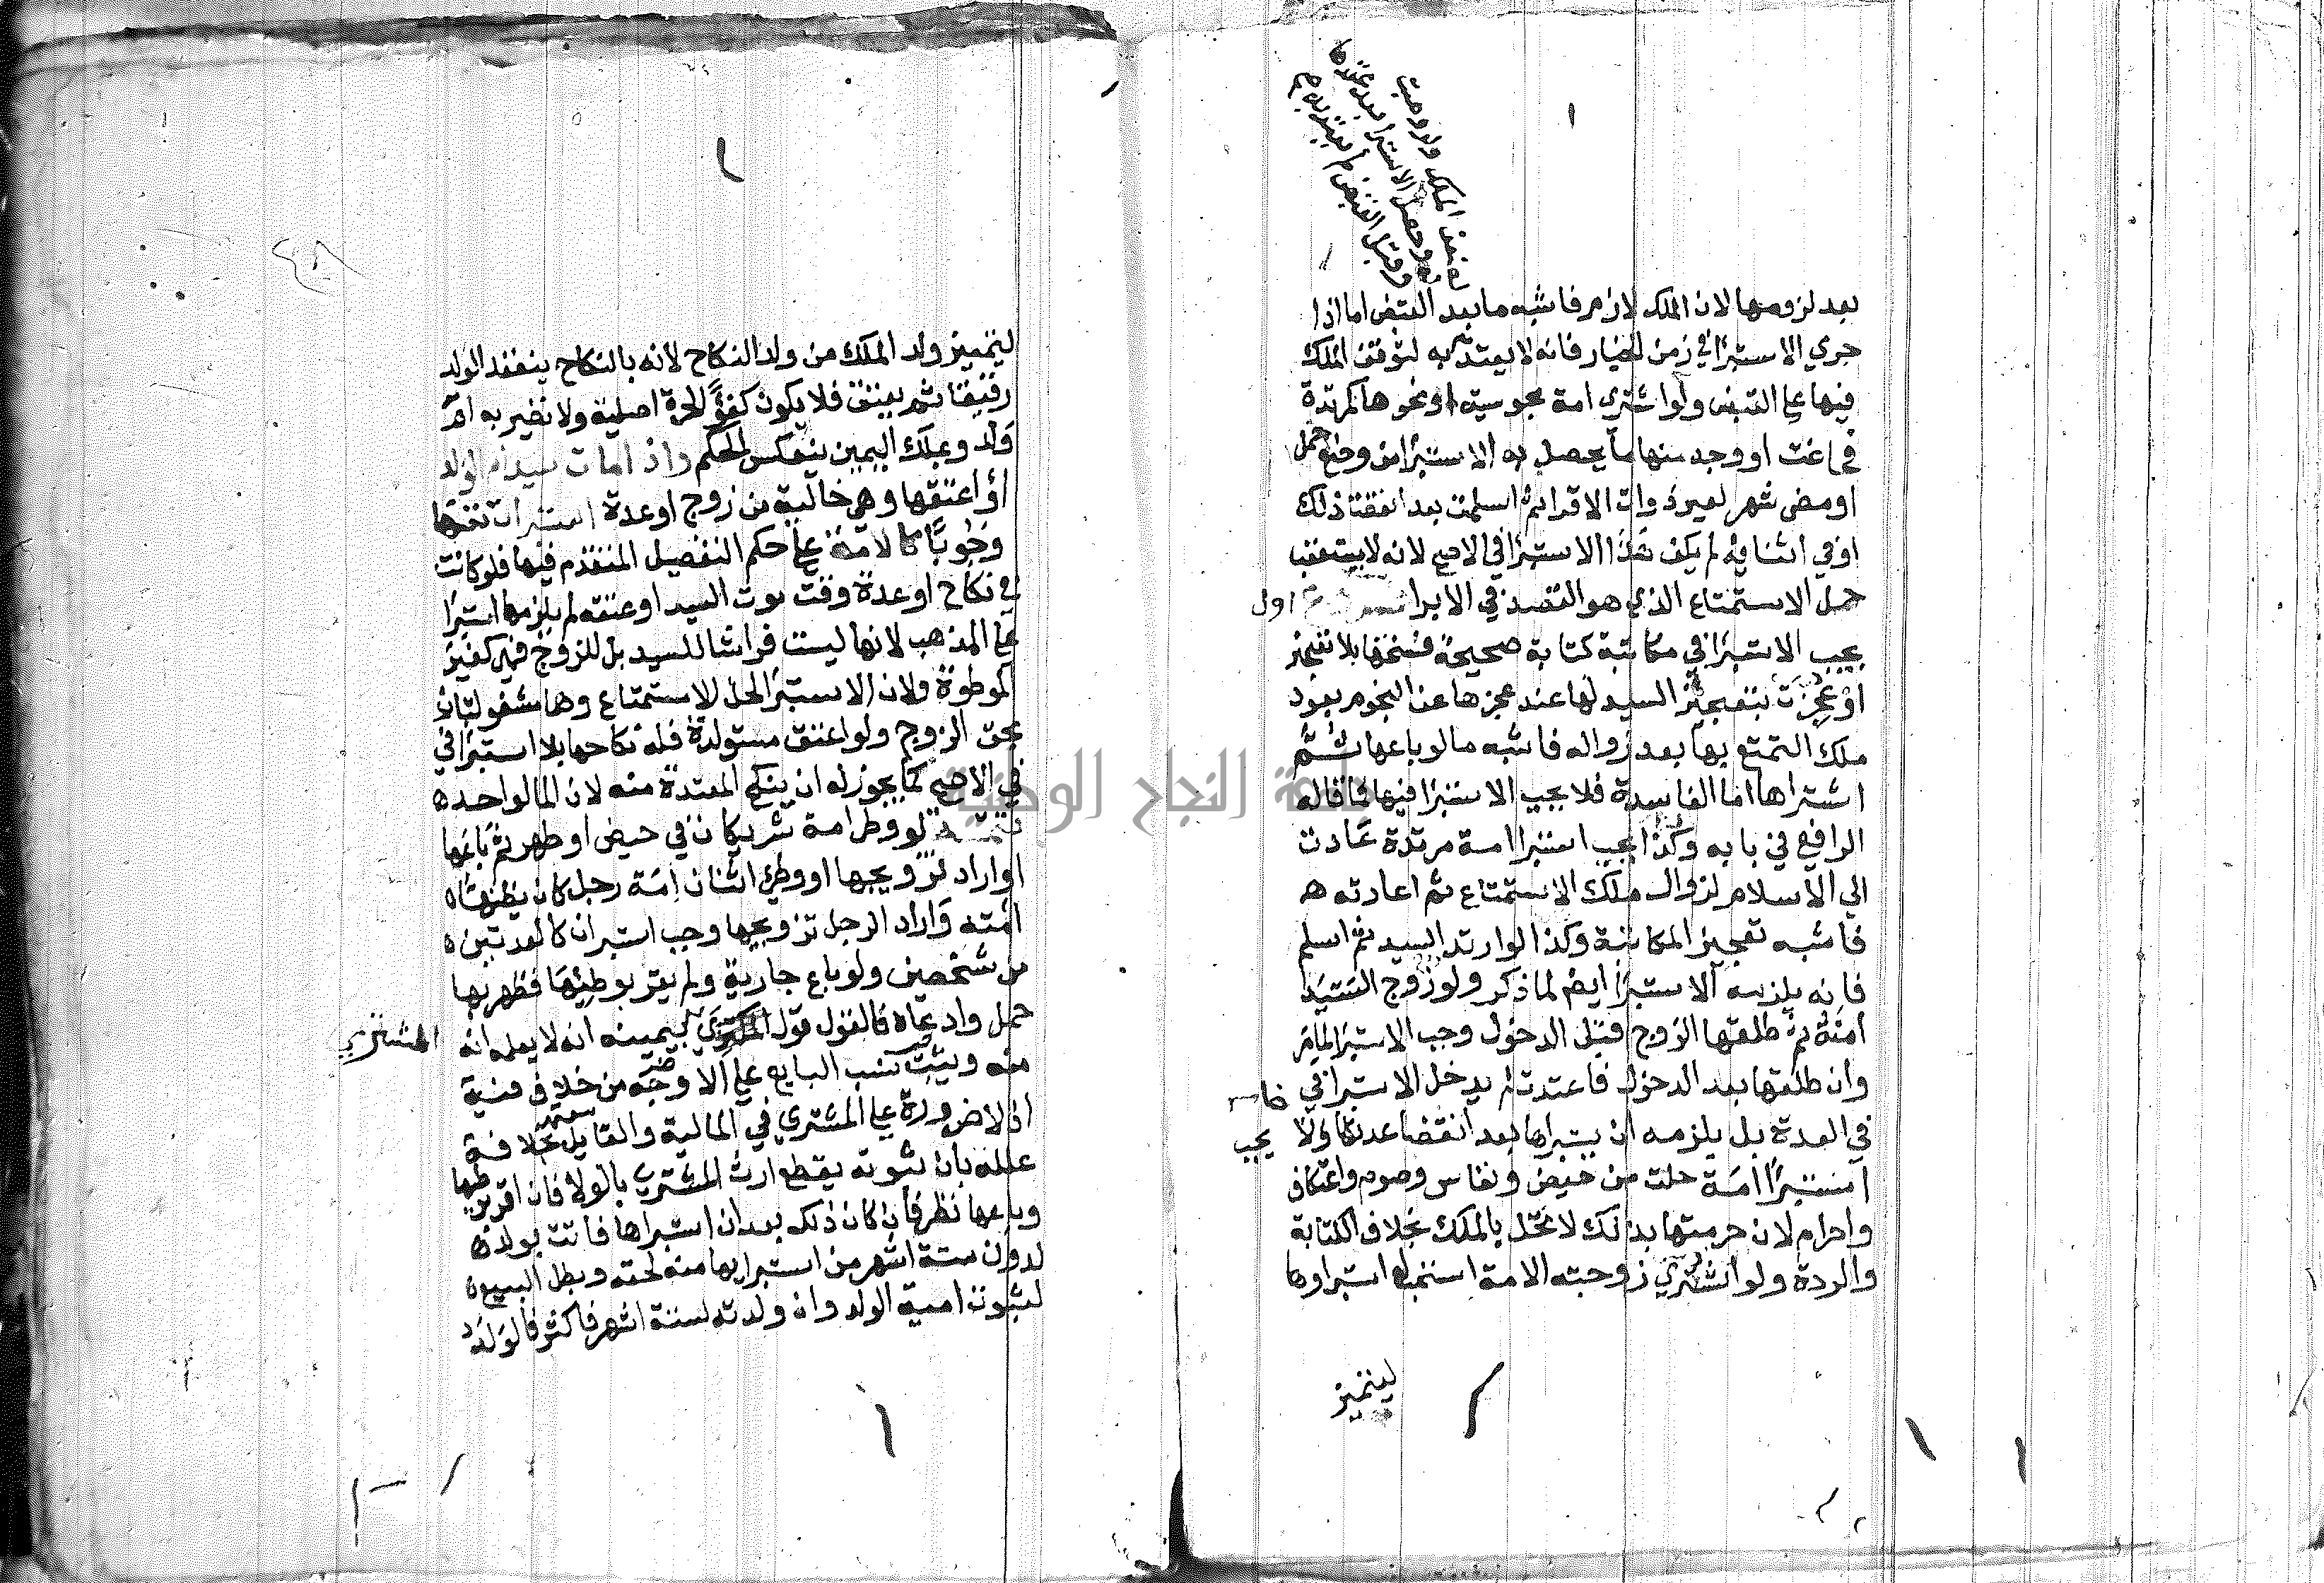 بعد لزومها لان الملك لازم فاشبه ما بعد القبض اما اذا
جري الاستبرا في زمن الخيار فانه لا يعتد به لتوقف الملك
فيها علي القبض ولو اشتري امة مجوسية او نحوها كمرتدة
فحاضت او وجد منها ما يحصل به الاستبرا من وضع حمل
او مضي شهر لغير ذوات الاقرا ثم اسلمت بعد انقضا ذلك
او في اثنايه لم يكف هذا الاستبرا في الاصح لانه لا يستعقب
حل الاستمتاع الذي هو القصد في الاستبرا
يجب الاستبرا في مكاتبة كتابة صحيحة فسختها بلا تعجيز
او عجزت بتعجيز السيد لها عند عجزها عن النجوم بعود
ملك التمتع بها بعد زواله فاشبه ما لو باعها ثم
اشتراها اما الفاسدة فلا يجب الاستبرا فيها كما قاله
الرافعي في بابه وكذا يجب استبرا امة مرتدة عادت
الي الاسلام لزوال ملك الاستمتاع ثم اعادته
فاشبه تعجيز المكاتبة وكذا لو ارتد السيد ثم اسلم
فانه يلزمه الاستبرا ايضا لما ذكر ولو زوج السيد
امته ثم طلقها الزوج قبل الدخول وجب الاستبرا لما مر
وان طلقها بعد الدخول فاعتدت لم يدخل الاستبرا في
في العدة بل يلزمه ان يستبراها بعد انقضا عدتها ولا يجب
استبرا امة حلت من حيض ونفاس وصوم واعتكاف
واحرام لان حرمتها بذلك لا تخل بالملك بخلاف الكتابة
والردة ولو اشتري زوجته الامة استحب له استبراوها
ليتميز
ليتميز ولد الملك من ولد النكاح لانه بالنكاح ينعقد الولد
رقيقا ثم يعتق فلا يكون كفؤا لحرة اصلية ولا تصير به ام
ولد وبملك اليمين ينعكس الحكم واذا مات سيد ام الولد
او اعتقها وهي خالية من زوج او عدة استبرات نفسها
وجوبا كالامة علي حكم التفصيل المتقدم فيها فلو كانت
في نكاح او عدة وقت موت السيد او عتقه لم يلزمها استبرا
علي المذهب لانها ليست فراشا للسيد بل للزوج فهي كغير
الموطوة ولان الاستبرا لحل الاستمتاع وهما مشغولتان
بحق الزوج ولو اعتق مستولدة فله نكاحها بلا استبرا في
في الاصح كما يجوز له ان ينكح المعتدة منه لان الما لواحد
تتمة لو وطي امة شريكان في حيض او طهر ثم باعها
او اراد تزويجها او وطي اثنان امة رجل كل يظنها
امته واراد الرجل تزويجها وجب استبران كالعدتين
من شخصين ولو باع جارية ولم يقر بوطيها فظهر بها
حمل وادعاه فالقول قول المشتري بيمينه انه لا يعلمه انه
منه ويثبت نسب البايع علي الاوجه من خلاف فيه
اذ لا ضرورة علي المشتري في المالية والقايل بخلافه
علله بان ثبوته يقطع ارث المشتري بالولا فان اقر بوطيها
وباعها نظر فان كان ذلك بعد ان استبراها فاتت بولد
لدون ستة اشهر من استبرايها منه لحقه وبطل البيع
لثبوت امية الولد وان ولدته لستة اشهر فاكثر فالولد